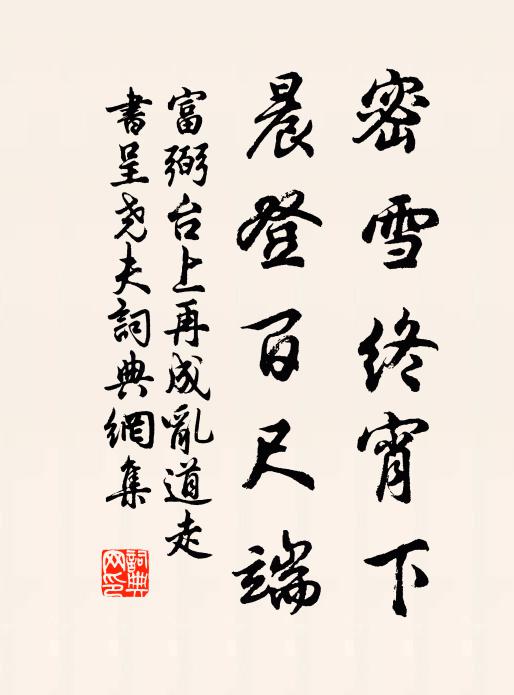 密雪終宵下
晨登百尺端
富弼台上再成亂道走
書呈尧夫詞典網集
詞典网印